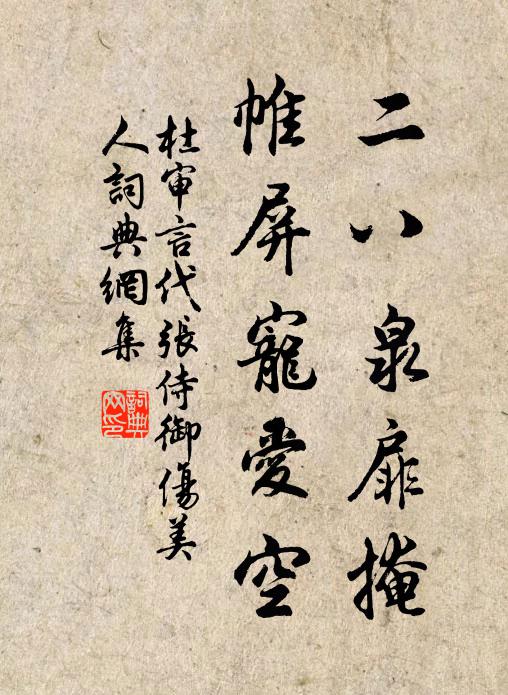 二八泉扉掩
帷屏寵愛空
杜审言代張侍御傷美
人詞典網集
詞典
网印